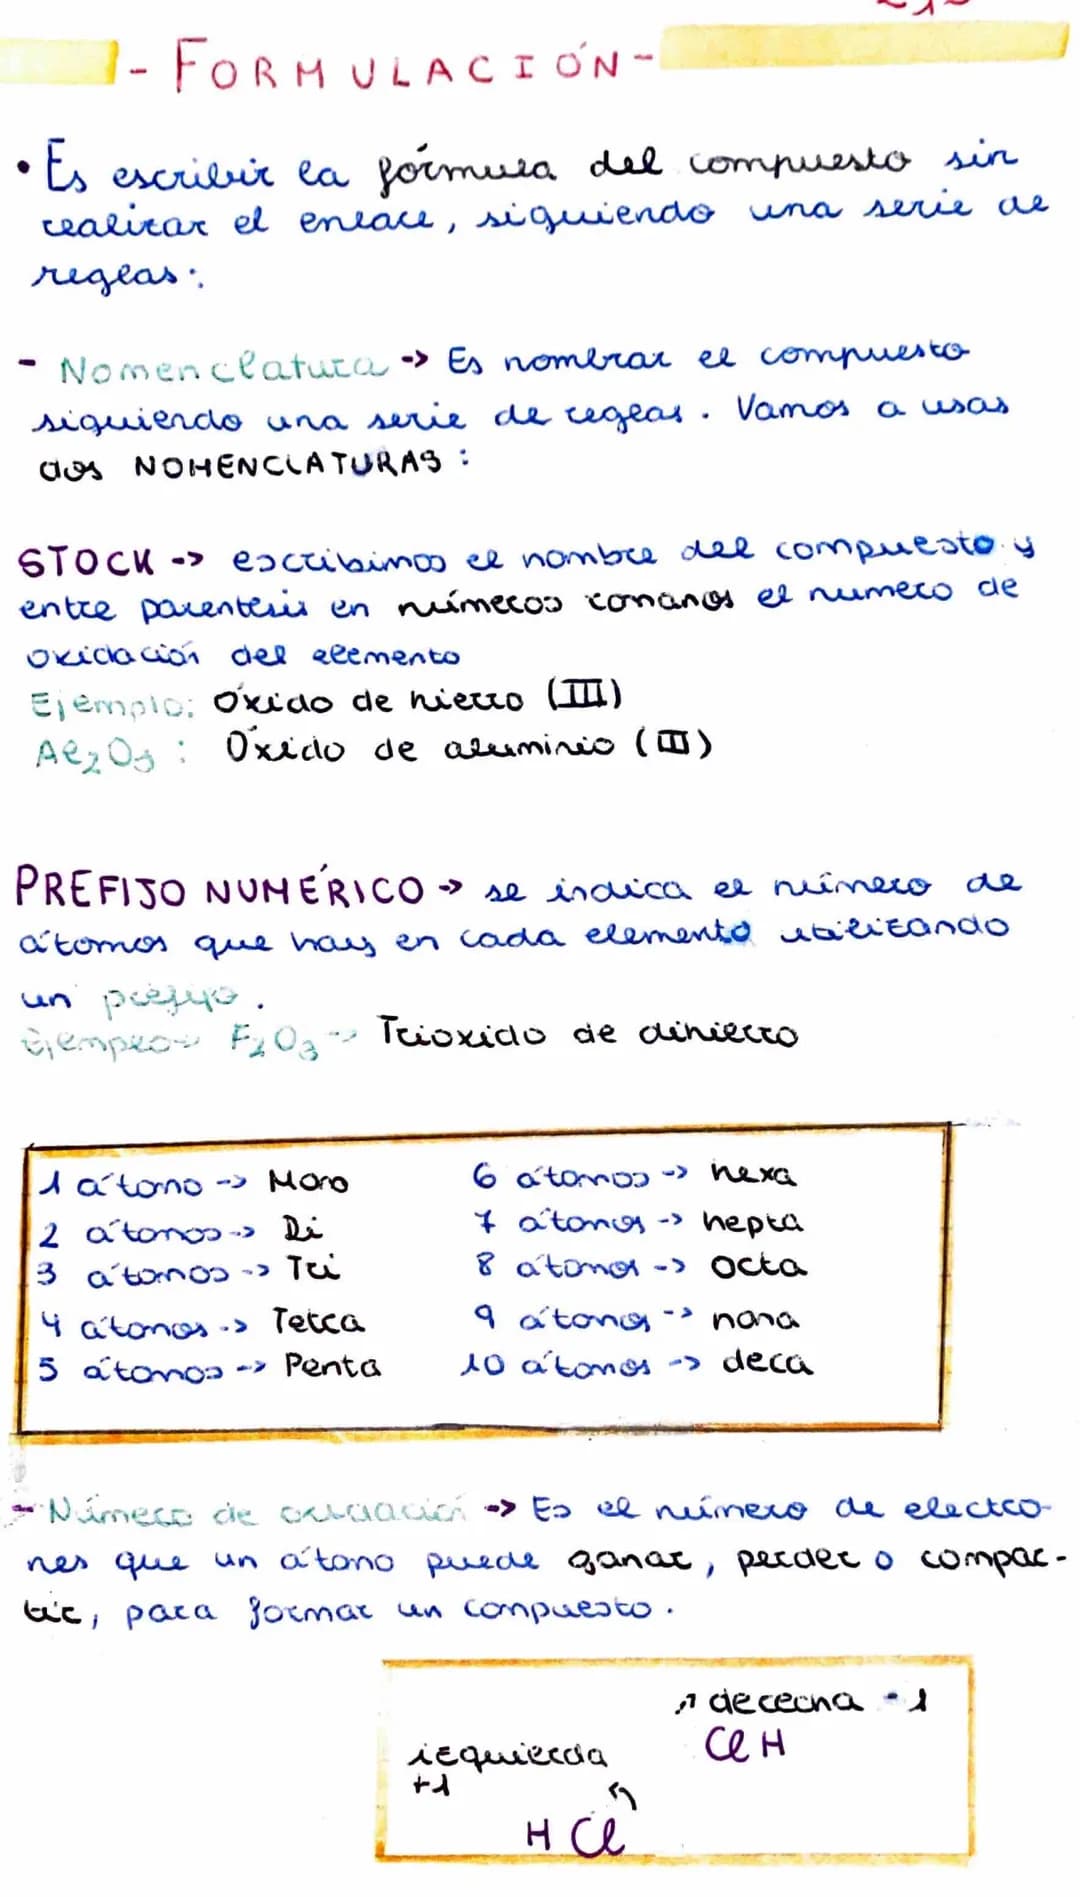 - FORMULACIÓN -
• Es escribir la fórmula del compuesto sin
realizar el enlace, siguiendo una serie de
reglas:
- Nomenclatura -> Es nombrar el compuesto
siguiendo una serie de reglas. Vamos a usas
dos NOMENCLATURAS :
STOCK -> escribimos el nombre del compuesto y
entre parentesis en números romanos el numero de
oxidación del elemento
Ejemplo: Óxido de hierro (III)
Al2O3 : Óxido de aluminio (III)
PREFIJO NUMÉRICO -> se indica el número de
átomos que hay en cada elemento utilizando
un prefijo.
Ejemplo-> F2O3 -> Trioxido de dihierro
1 átomo -> Mono
2 átomos -> Di
3 átomos -> Tri
4 átomos -> Tetra
5 átomos -> Penta
6 átomos -> hexa
7 átomos -> hepta
8 átomos -> octa
9 átomos -> nona
10 átomos -> deca
- Número de oxidación -> Es el número de electro-
nes que un átomo puede ganar, perder o compar-
tir, para formar un compuesto.
derecha - 1
Cl H
izquierda
+1
H Cl